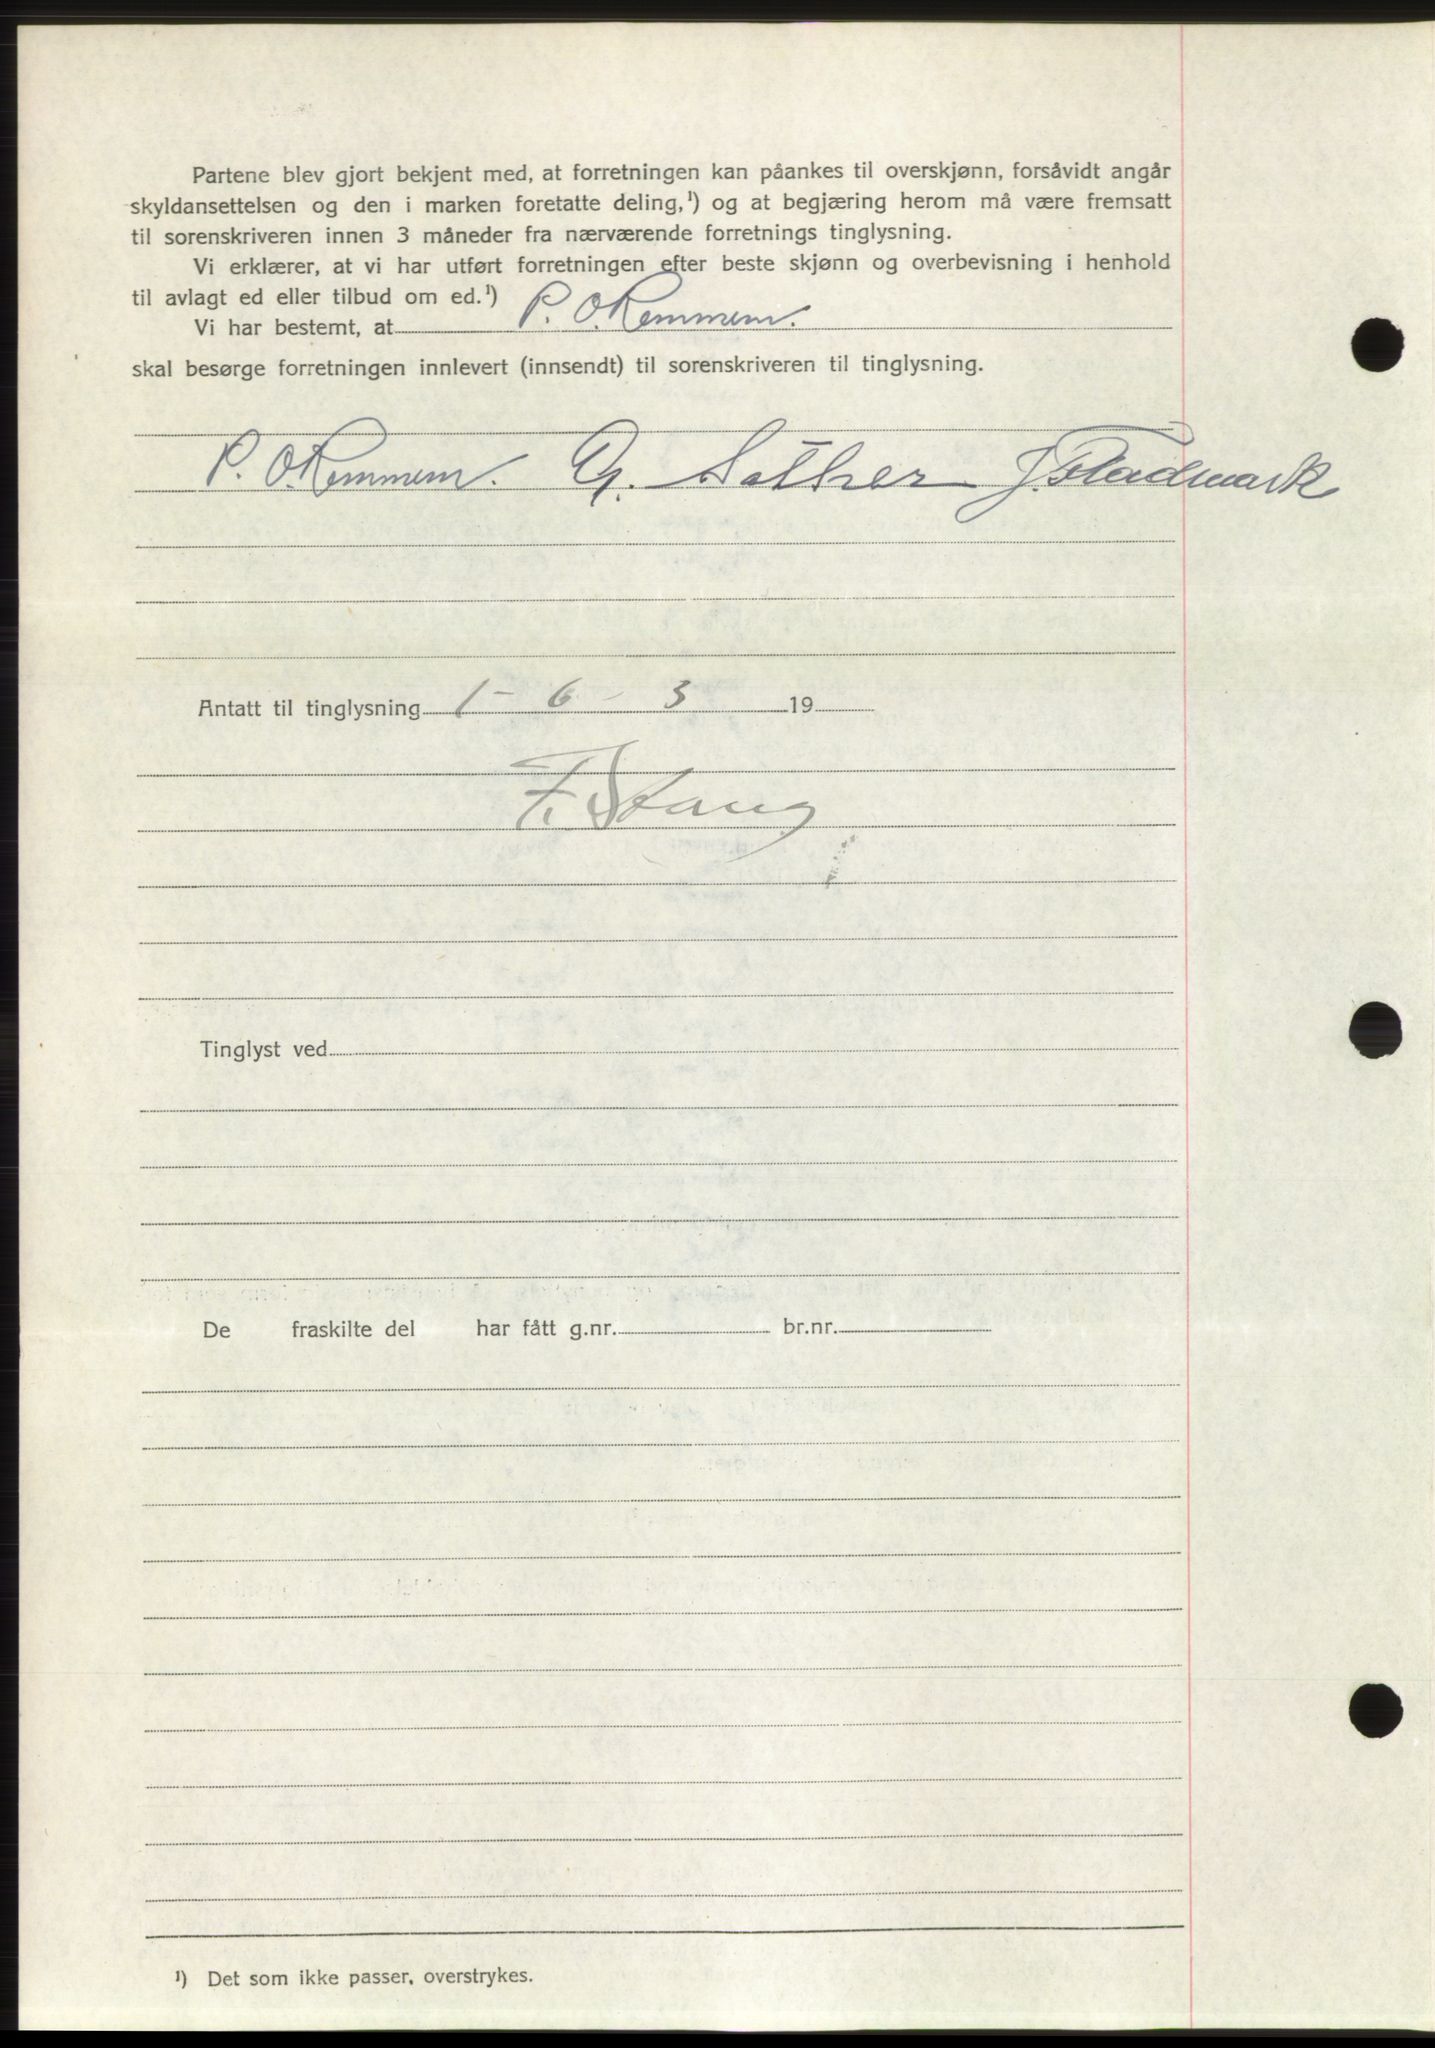 Partene blev gjort bekjent med, at forretningen kan påankes til overskjønn, forsåvidt angår
skyldansettelsen og den i marken foretatte deling,¹) og at begjæring herom må være fremsatt
til sorenskriveren innen 3 måneder fra nærværende forretnings tinglysning.
Vi erklærer, at vi har utført forretningen efter beste skjønn og overbevisning i henhold
til avlagt ed eller tilbud om ed.¹)
Vi har bestemt, at P. O. Remmem.
skal besørge forretningen innlevert (innsendt) til sorenskriveren til tinglysning.
P. O. Remmem. G. Sæther J. Stadmark
Antatt til tinglysning 1 - 6 - 3 19
F. Stang
Tinglyst ved
De fraskilte del har fått g.nr. br.nr.
¹) Det som ikke passer, overstrykes.